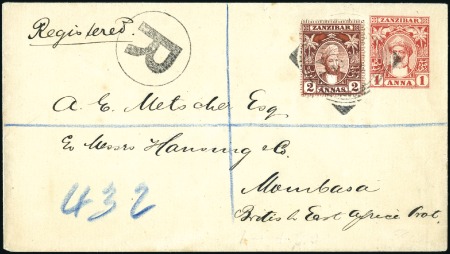 Registered.
R
ZANZIBAR
2 2
ANNAS
ZANZIBAR
1 1
ANNA
A. E. Metscher Esq
c/o Messrs Hansing & Co.
Mombasa
British East Africa Prot.
432